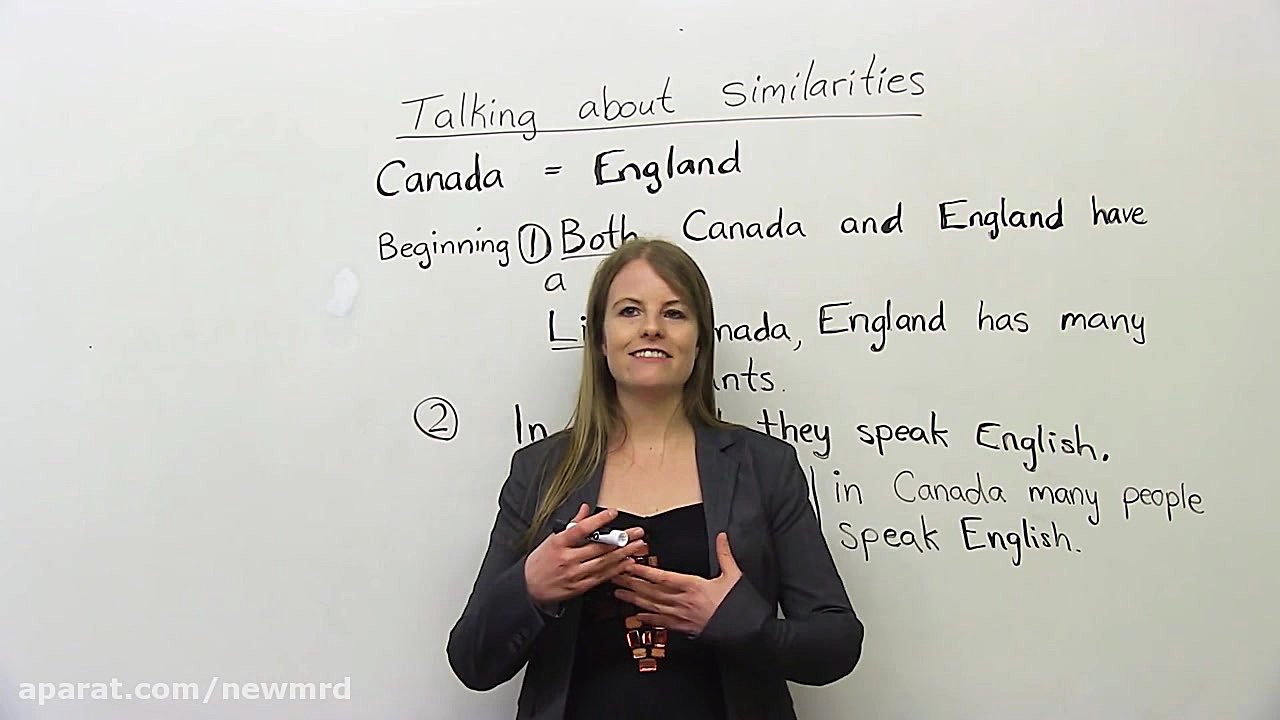 Talking about similarities
Canada = England
Beginning ① Both Canada and England have
a
Canada, England has many
② In they speak English.
in Canada many people
speak English.
aparat.com/newmrd